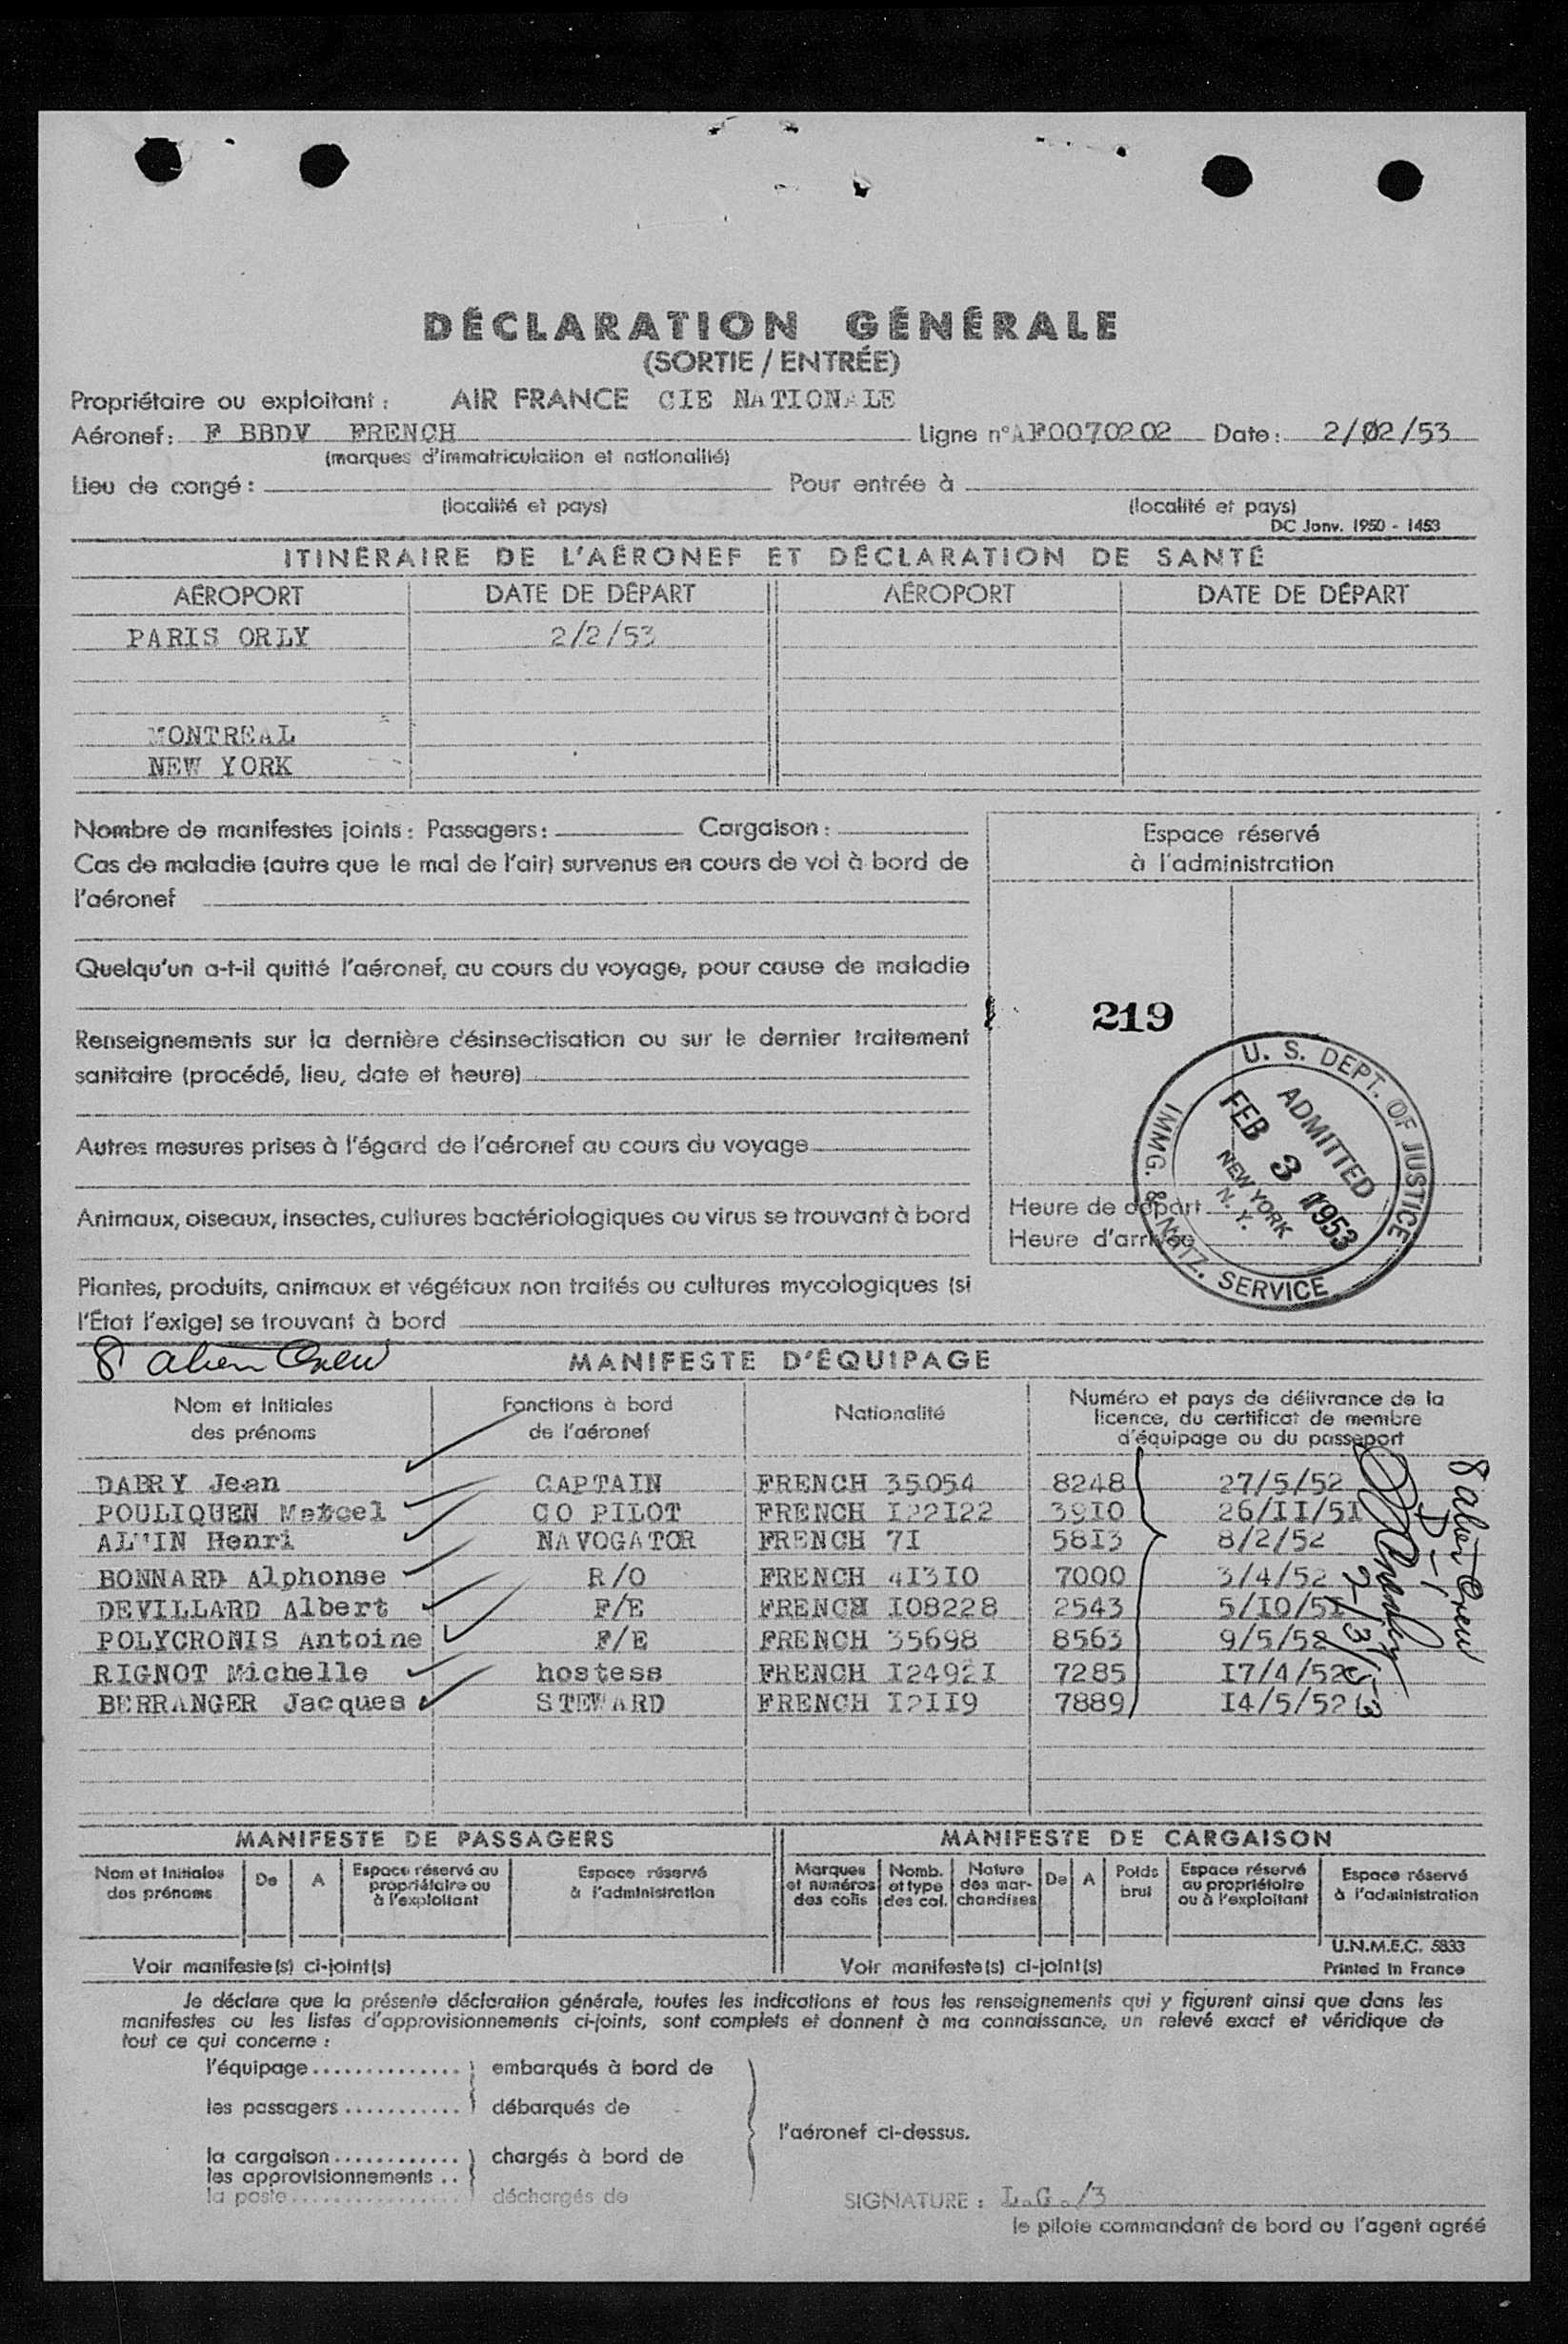 DÉCLARATION GÉNÉRALE
(SORTIE / ENTRÉE)
Propriétaire ou exploitant : AIR FRANCE CIE NATIONALE
Aéronef : F BBDV FRENCH Ligne n° AF0070202 Date : 2/02/53
(marques d'immatriculation et nationalité)
Lieu de congé : Pour entrée à
(localité et pays) (localité et pays)
DC Janv. 1950 - 1453
ITINÉRAIRE DE L'AÉRONEF ET DÉCLARATION DE SANTÉ
AÉROPORT DATE DE DÉPART AÉROPORT DATE DE DÉPART
PARIS ORLY 2/2/53
MONTREAL
NEW YORK
Nombre de manifestes joints : Passagers : Cargaison :
Cas de maladie (autre que le mal de l'air) survenus en cours de vol à bord de
l'aéronef
Quelqu'un a-t-il quitté l'aéronef, au cours du voyage, pour cause de maladie
Renseignements sur la dernière désinsectisation ou sur le dernier traitement
sanitaire (procédé, lieu, date et heure)
Autres mesures prises à l'égard de l'aéronef au cours du voyage
Animaux, oiseaux, insectes, cultures bactériologiques ou virus se trouvant à bord
Plantes, produits, animaux et végétaux non traités ou cultures mycologiques (si
l'État l'exige) se trouvant à bord
Espace réservé
à l'administration
219
U. S. DEPT. OF JUSTICE
IMMG. & NATZ. SERVICE
ADMITTED
FEB 3 1953
NEW YORK
N. Y.
Heure de départ
Heure d'arrivée
8 alien Crew
MANIFESTE D'ÉQUIPAGE
Nom et Initiales des prénoms Fonctions à bord de l'aéronef Nationalité Numéro et pays de délivrance de la licence, du certificat de membre d'équipage ou du passeport
DABRY Jean CAPTAIN FRENCH 35054 8248 27/5/52
POULIQUEN Marcel CO PILOT FRENCH I22I22 39I0 26/II/5I
Henri NAVOGATOR FRENCH 7I 58I3 8/2/52
BONNARD Alphonse R/O FRENCH 4I3I0 7000 3/4/52
DEVILLARD Albert F/E FRENCH I08228 2543 5/I0/5I
POLYCRONIS Antoine F/E FRENCH 35698 8563 9/5/52
RIGNOT Michelle hostess FRENCH I2492I 7285 I7/4/52
BERRANGER Jacques STEWARD FRENCH I2II9 7889 I4/5/52
8 alien Crew
D-1
2/3/53
MANIFESTE DE PASSAGERS MANIFESTE DE CARGAISON
Nom et Initiales des prénoms De A Espace réservé au propriétaire ou à l'exploitant Espace réservé à l'administration Marques et numéros des colis Nomb. et type des col. Nature des mar- chandises De A Poids brut Espace réservé au propriétaire ou à l'exploitant Espace réservé à l'administration
U.N.M.E.C. 5833
Voir manifeste(s) ci-joint(s) Voir manifeste(s) ci-joint(s) Printed in France
Je déclare que la présente déclaration générale, toutes les indications et tous les renseignements qui y figurent ainsi que dans les
manifestes ou les listes d'approvisionnements ci-joints, sont complets et donnent à ma connaissance, un relevé exact et véridique de
tout ce qui concerne :
l'équipage .............. embarqués à bord de
les passagers ........... débarqués de
l'aéronef ci-dessus.
la cargaison ............ chargés à bord de
les approvisionnements ..
la poste ................ déchargés de
SIGNATURE : L.G./3
le pilote commandant de bord ou l'agent agréé